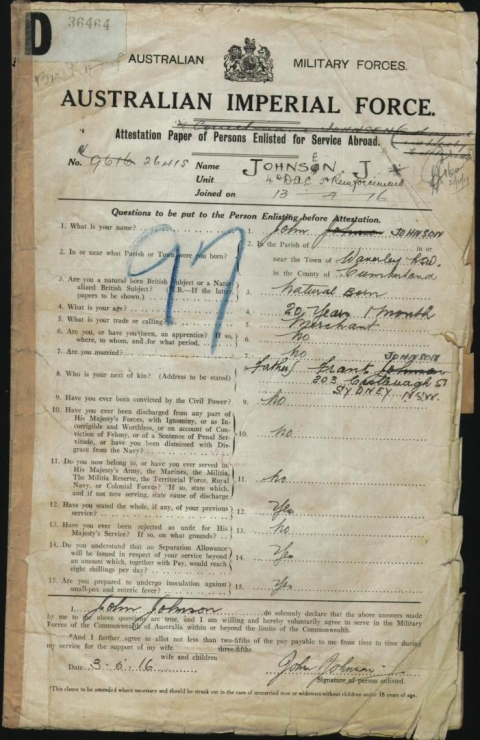 D
36464
AUSTRALIAN MILITARY FORCES.
AUSTRALIAN IMPERIAL FORCE.
Attestation Paper of Persons Enlisted for Service Abroad.
No. 9616 26415 Name JOHNSEN J.
Unit 4th DAC Reinforcement
Joined on 13 - 4 - 16
Questions to be put to the Person Enlisting before Attestation.
1. What is your name? 1. John Johnson JOHNSON
2. In or near what Parish or Town were you born? 2. In the Parish of in or
near the Town of Waverley
in the County of Cumberland
3. Are you a natural born British Subject or a Natu-
ralized British Subject? (N.B.—If the latter,
papers to be shown.) 3. Natural Born
4. What is your age? 4. 20 Years 1 month
5. What is your trade or calling? 5. Merchant
6. Are you, or have you been, an apprentice? If so,
where, to whom, and for what period. 6. No
7. Are you married? 7. No
8. Who is your next of kin? (Address to be stated) 8. Father) Grant JOHNSON
203 Castlereagh St
SYDNEY NSW
9. Have you ever been convicted by the Civil Power? 9. No
10. Have you ever been discharged from any part of
His Majesty's Forces, with Ignominy, or as In-
corrigible and Worthless, or on account of Con-
viction of Felony, or of a Sentence of Penal Ser-
vitude, or have you been Dismissed with Dis-
grace from the Navy? 10. No.
11. Do you now belong to, or have you ever served in,
His Majesty's Army, the Marines, the Militia,
The Militia Reserve, the Territorial Force, Royal
Navy, or Colonial Forces? If so, state which,
and if not now serving, state cause of discharge 11. No
12. Have you stated the whole, if any, of your previous
service? 12. Yes
13. Have you ever been rejected as unfit for His
Majesty's Service? If so, on what grounds? 13. No
14. Do you understand that no Separation Allowance
will be issued in respect of your service beyond
an amount which, together with Pay, would reach
eight shillings per day? 14. Yes
15. Are you prepared to undergo inoculation against
small-pox and enteric fever? 15. Yes
97
I, John Johnson do solemnly declare that the above answers made
by me to the above questions are true, and I am willing and hereby voluntarily agree to serve in the Military
Forces of the Commonwealth of Australia within or beyond the limits of the Commonwealth.
*And I further agree to allot not less than two-fifths of the pay payable to me from time to time during
three-fifths
my service for the support of my wife
wife and children
Date 3-6-16 John Johnson
Signature of person enlisted.
*This clause to be amended where necessary and should be struck out in the case of unmarried men or widowers without children under 18 years of age.